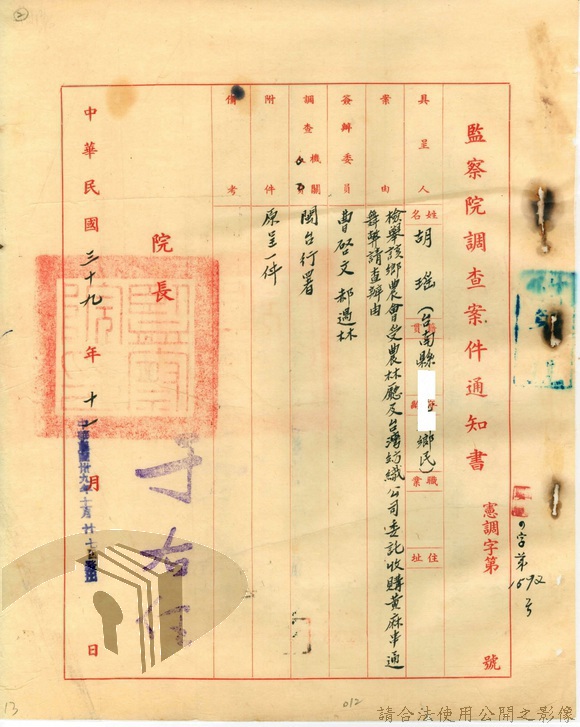 監察院調查案件通知書
憲調字第 號
1692
具呈人
姓名
胡瑤(台南縣 鄉民)
籍貫
職業
住址
案由
檢舉該鄉農會受農林廳及台灣紡織公司委託收購黃麻串通
舞弊請查辦由
簽辦委員
曹啓文 郝遇林
調查機關
閩台行署
附件
原呈一件
備考
院長
于右任
中華民國三十九年十一月 日
13
012
請合法使用公開之影像